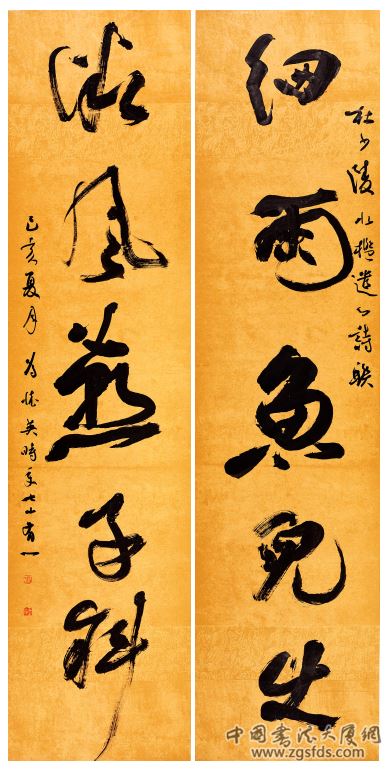 細雨魚兒出
杜少陵水檻遣心詩聯
微风燕子斜
己亥夏月 英時年七十有一
中國書法大廈網
www.zgsfds.com